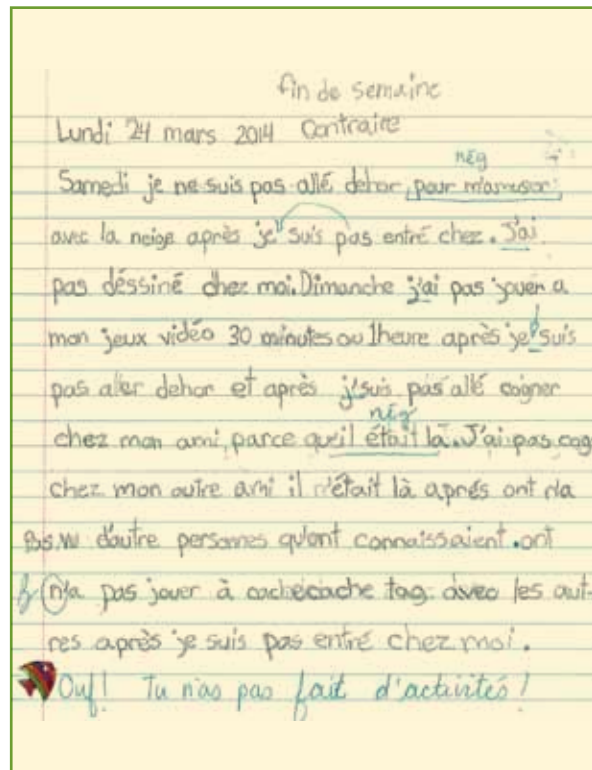 fin de semaine
Lundi 24 mars 2014 Contraire
nég
Samedi je ne suis pas allé dehor, pour m'amuser,
avec la neige après je suis pas entré chez. J'ai
pas déssiné chez moi. Dimanche j'ai pas jouer a
mon jeux vidéo 30 minutes ou 1heure après je suis
pas aller dehor et après j'suis pas allé cogner
nég
chez mon ami, parce qu'il était là. J'ai pas cog
chez mon autre ami il n'était là aprés ont n'a
pas vu d'autre personnes qu'ont connaissaient. ont
n'a pas jouer à cachecache tag avec les aut-
res après je suis pas entré chez moi.
Ouf! Tu n'as pas fait d'activités!